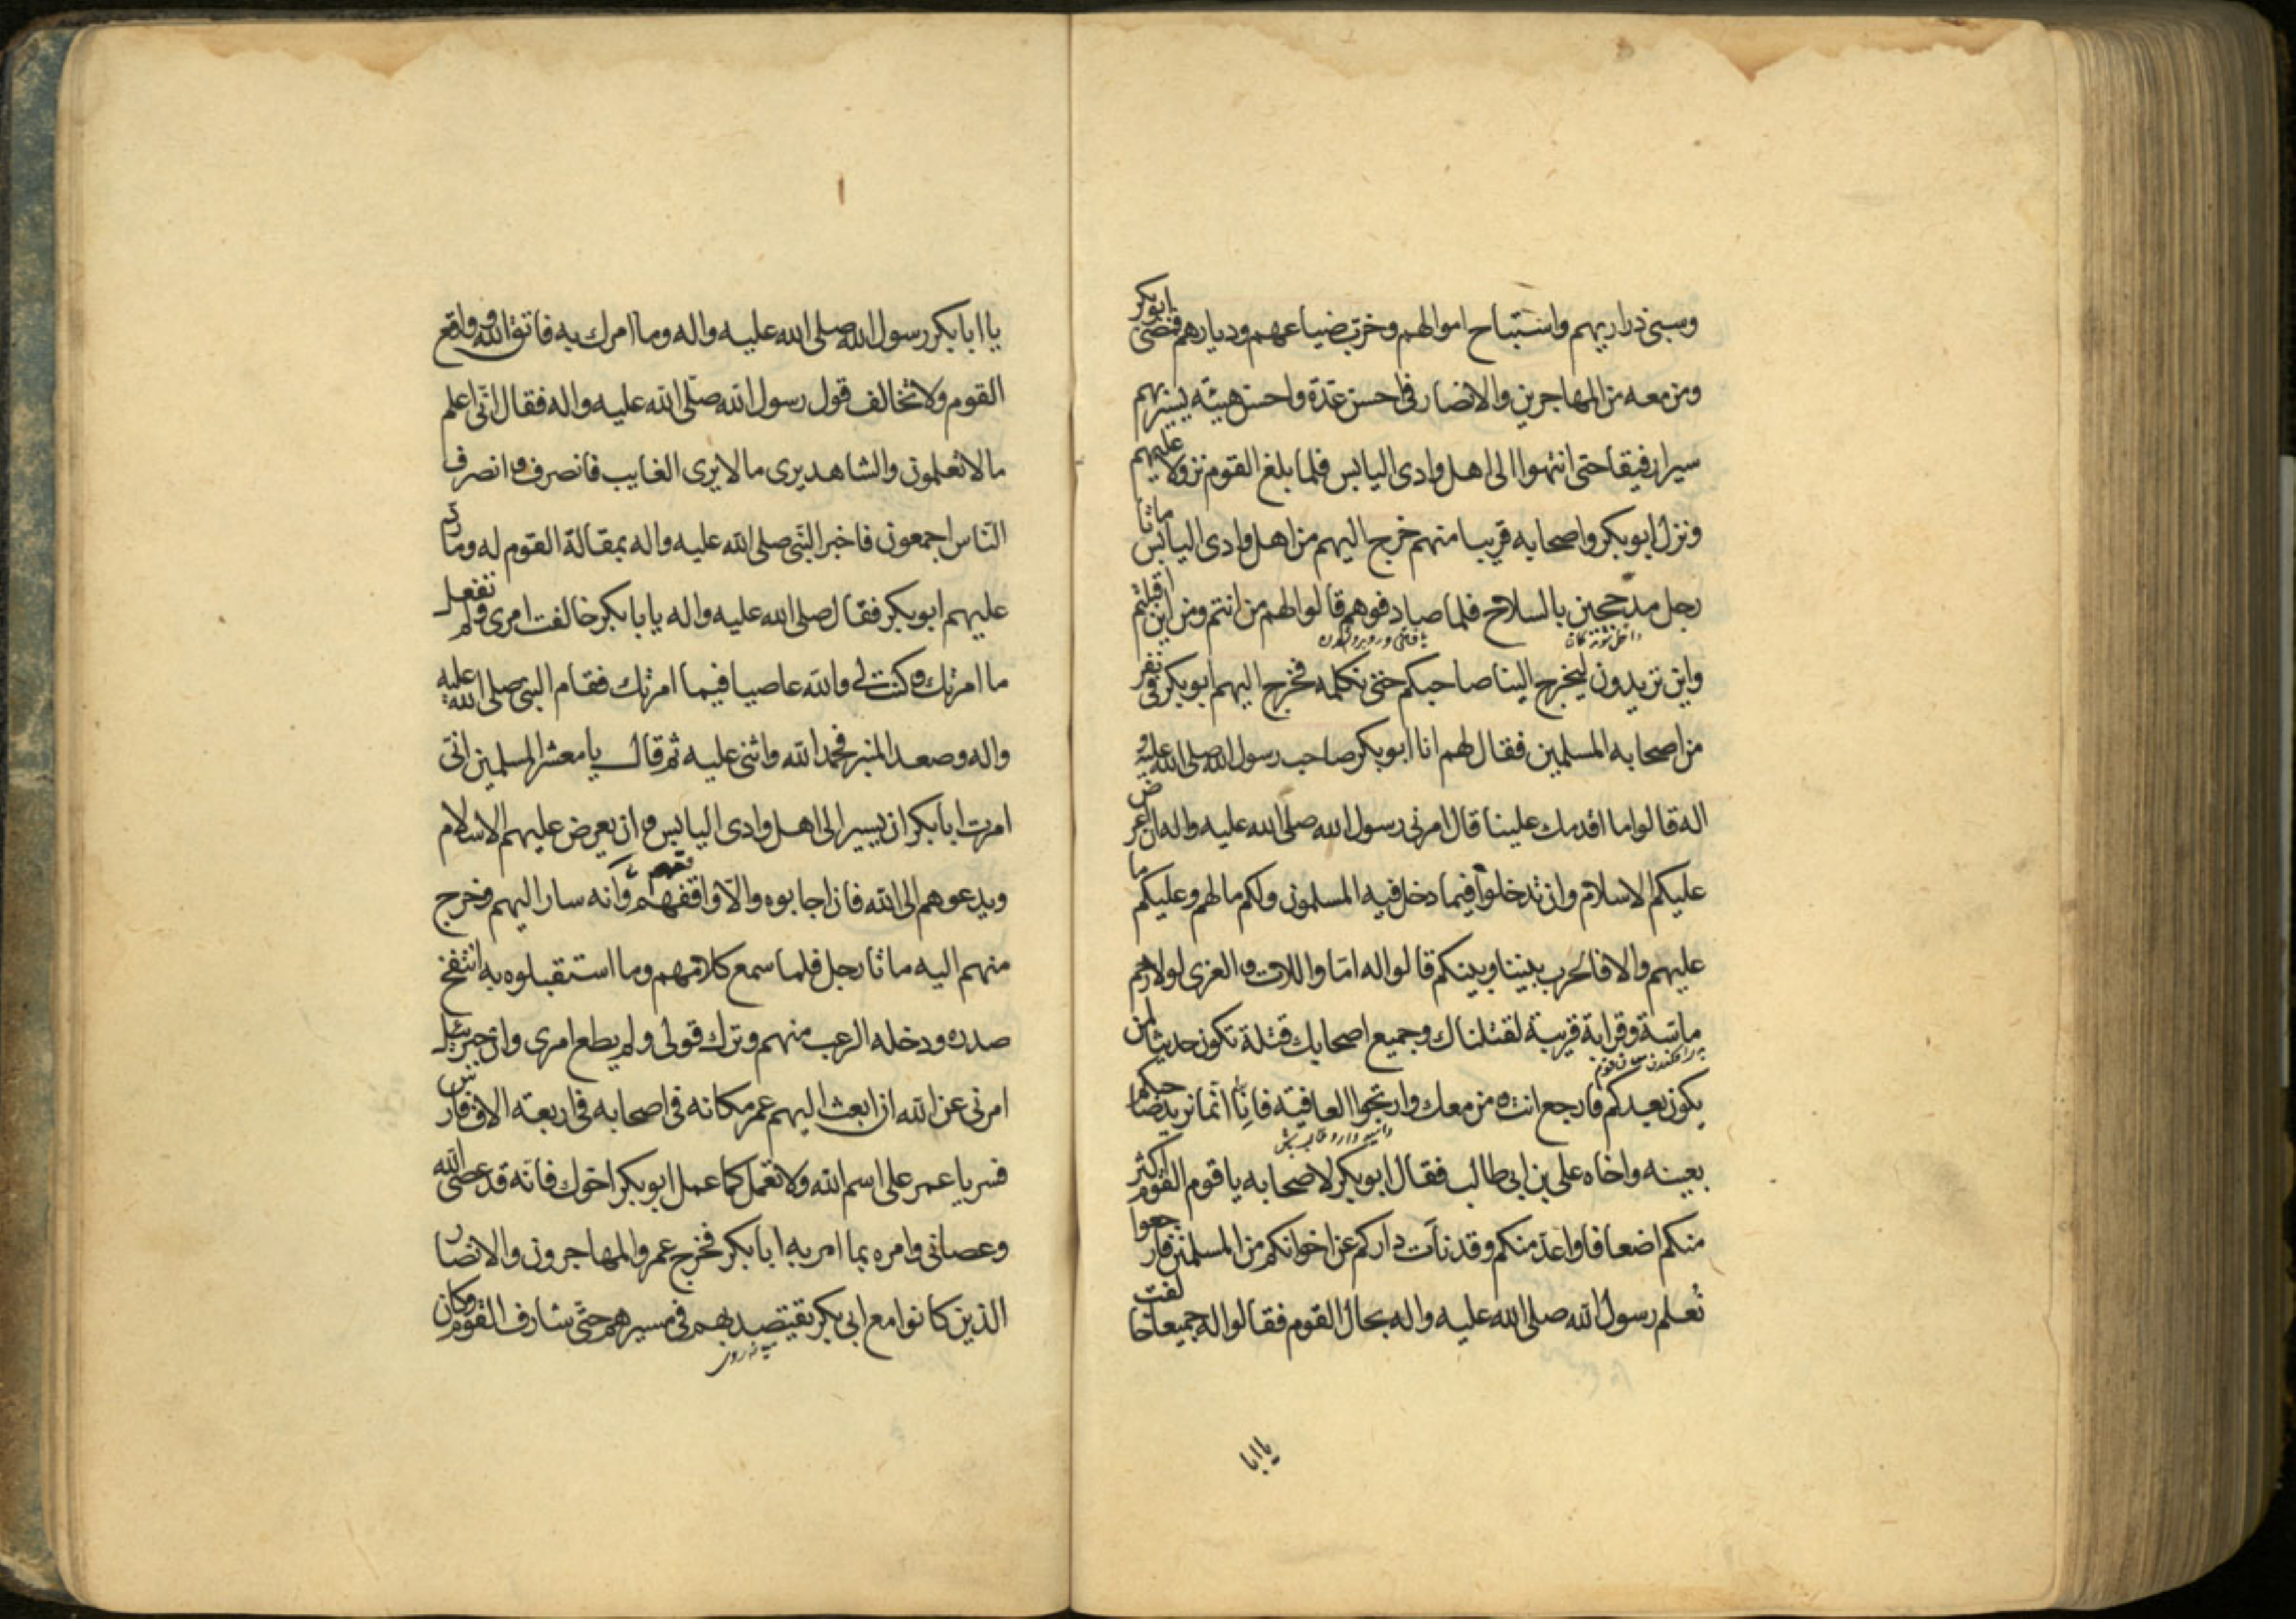 وسبى ذراريهم واستباح اموالهم وخرب ضياعهم وديارهم فمضى ابوبكر
ومن معه من المهاجرين والانصار فى احسن عدّة واحسن هيئة يسير بهم
سيرا رفيقا حتى انتهوا الى اهل وادى اليابس فلما بلغ القوم نزولا عليهم
ونزل ابوبكر واصحابه قريبا منهم خرج اليهم من اهل وادى اليابس ماتا
رجل مدججين بالسلاح فلما صادفوهم قالوا لهم من انتم ومن اين اقبلتم
واين تريدون ليخرج الينا صاحبكم حتى نكلمه فخرج اليهم ابوبكر فى نفر
من اصحابه المسلمين فقال لهم انا ابوبكر صاحب رسول الله صلى الله عليه و
اله قالوا ما اقدمك علينا قال امرنى رسول الله صلى الله عليه واله ان اعرض
عليكم الاسلام وان تدخلوا فيما دخل فيه المسلمون ولكم ما لهم وعليكم ما
عليهم والا فالحرب بيننا وبينكم قالوا له امّا واللات والعزى لولا رحم
ماسّة وقرابة قريبة لقتلناك وجميع اصحابك قتلة تكون حديثا لمن
يكون بعدكم فارجع انت ومن معك وارتجوا العافية فانّا انّما نريد صاحبكم
بعينه واخاه على بن ابى طالب فقال ابوبكر لاصحابه يا قوم القوم اكثر
منكم اضعافا واعدّ منكم وقد نات داركم عن اخوانكم من المسلمين فارجعوا
نعلم رسول الله صلى الله عليه واله بحال القوم فقالوا له جميعا خالفت
يا ابا
يا ابا بكر رسول الله صلى الله عليه واله وما امرك به فاتق الله وواقع
القوم ولا تخالف قول رسول الله صلّى الله عليه واله فقال انّى اعلم
ما لا تعلمون والشاهد يرى ما لا يرى الغايب فانصرف وانصرف
النّاس اجمعون فاخبر النّبى صلى الله عليه واله بمقالة القوم له وما ردّ
عليهم ابوبكر فقال صلى الله عليه واله يا بابكر خالفت امرى ولم تفعل
ما امرتك وكنت لى والله عاصيا فيما امرتك فقام النبى صلى الله عليه
واله وصعد المنبر فحمد الله واثنى عليه ثم قال يا معشر المسلمين انّى
امرت ابا بكر ان يسير الى اهل وادى اليابس وان يعرض عليهم الاسلام
ويدعوهم الى الله فان اجابوه والّا واقفهم وانه سار اليهم وخرج
منهم اليه ماتا رجل فلما سمع كلامهم وما استقبلوه به انتفخ
صدره ودخله الرعب منهم وترك قولى ولم يطع امرى وان جبرئيل
امرنى عن الله ان ابعث اليهم عمر مكانه فى اصحابه فى اربعة الاف فارس
فسر يا عمر على اسم الله ولا تعمل كما عمل ابوبكر اخوك فانّه قد عصى الله
وعصانى وامره بما امر به ابا بكر فخرج عمر والمهاجرون والانصار
الذين كانوا مع ابى بكر يقتصد بهم فى مسيرهم حتّى شارف القوم وكان